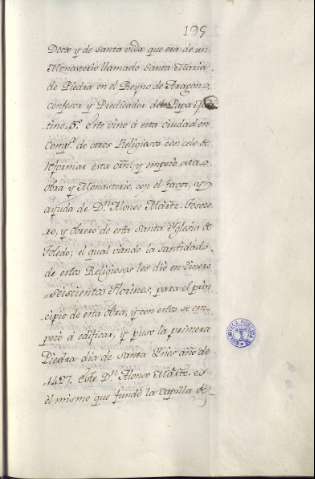 195
Docto y de santa vida que era de un
Monasterio llamado Santa Maria
de Piedra en el Reyno de Aragon,
confesor y Predicador del Papa
tino 5º. este vino à esta ciudad en
Compª. de otros Religiosos con celo de
reformar esta orñ, y empezò esta
obra y Monasterio, con el favor, y
ayuda de Dn. Alonso Martz. Tesore-
ro, y obrero de esta Santa Yglesia de
Toledo; el qual viendo la santidad
de estos Religiosos les dio en dinero
seiscientos Florines, para el prin
cipio de esta obra, y con ellos se em-
pezò à edificar, y puso la primera
Piedra dia de Santa Ynes año de
1427. Este Dn. Alonso Martz. es
el mismo que fundò la capilla de